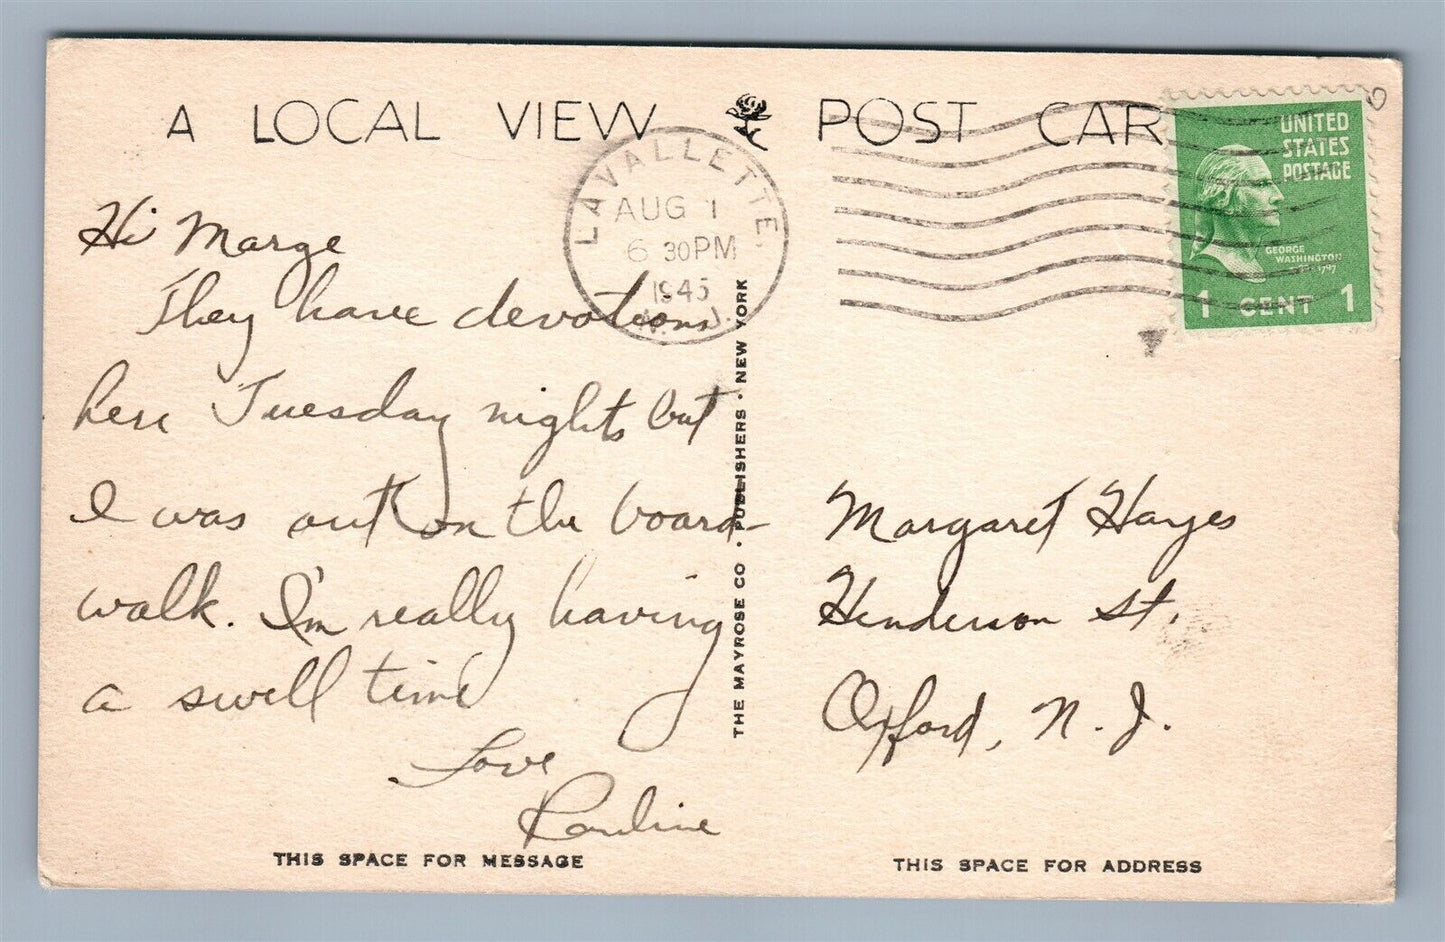 A LOCAL VIEW POST CAR
LAVALLETTE,
AUG 1
6 30PM
1945
N. J.
UNITED
STATES
POSTAGE
GEORGE
WASHINGTON
1797
1 CENT 1
Hi Marge
They have devotions
here Tuesday nights but
I was out on the board-
walk. I'm really having
a swell time
Love
Pauline
THIS SPACE FOR MESSAGE
THE MAYROSE CO · PUBLISHERS · NEW YORK
Margaret Hayes
Henderson St.
Oxford, N. J.
THIS SPACE FOR ADDRESS